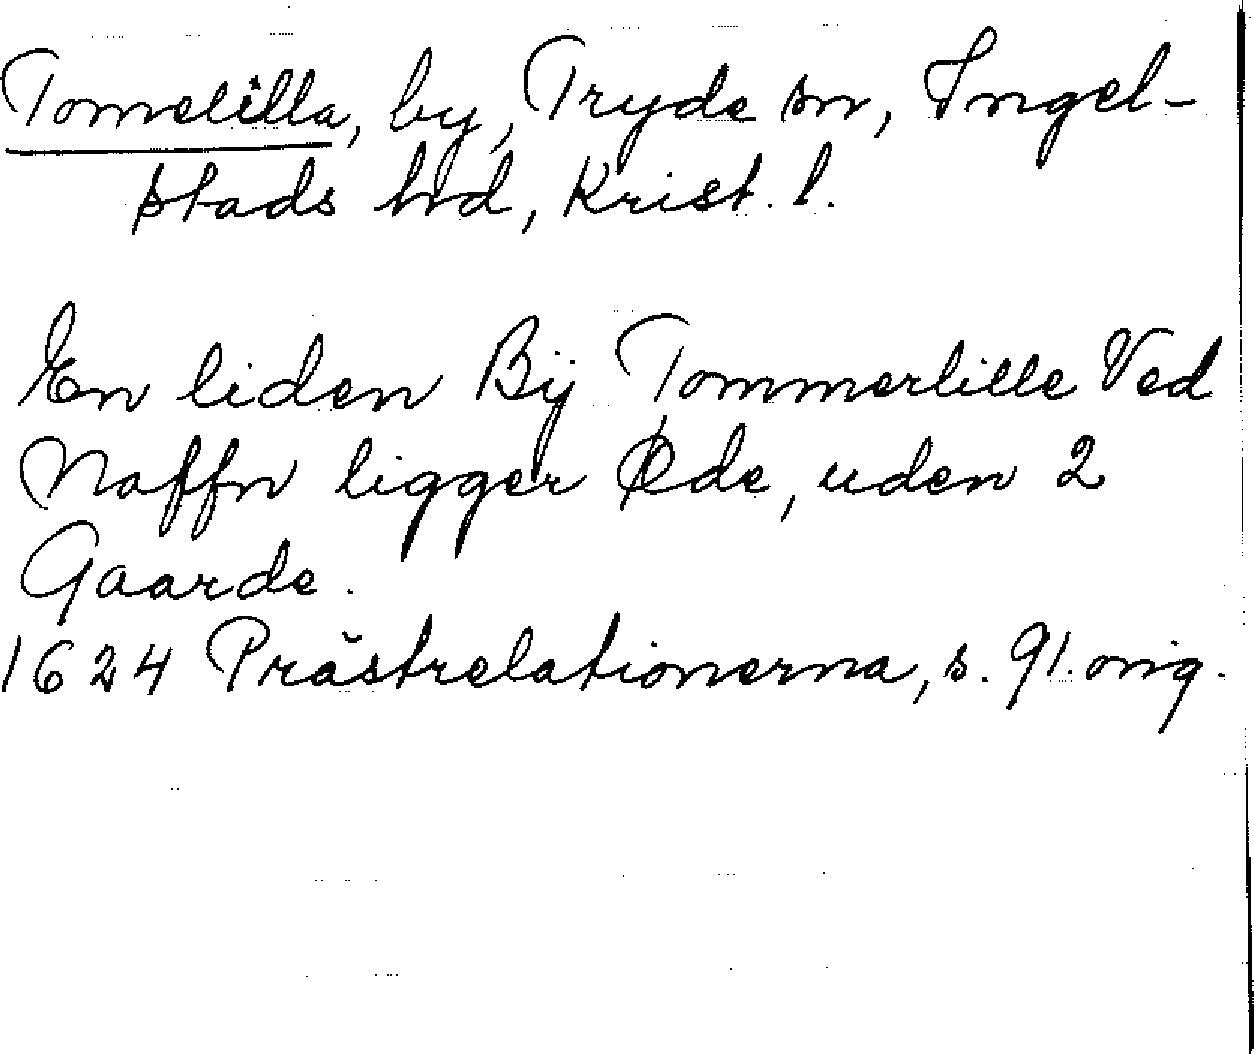 Tomelilla, by, Tryde sn, Ingel-
stads hd, Krist. l.
En liden Bÿ Tommerlille Ved
Naffn ligger Øde, uden 2
Gaarde.
1624 Prästrelationerna, s. 91. orig.